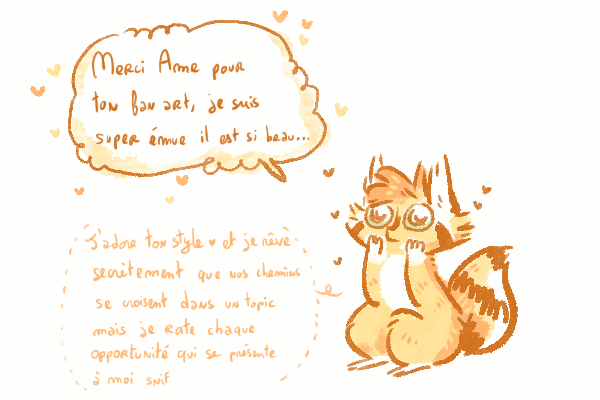 Merci Anne pour
ton fan art, je suis
super émue il est si beau...
J'adore ton style ♥ et je rêve
secrètement que nos chemins
se croisent dans un topic
mais je rate chaque
opportunité qui se présente
à moi snif